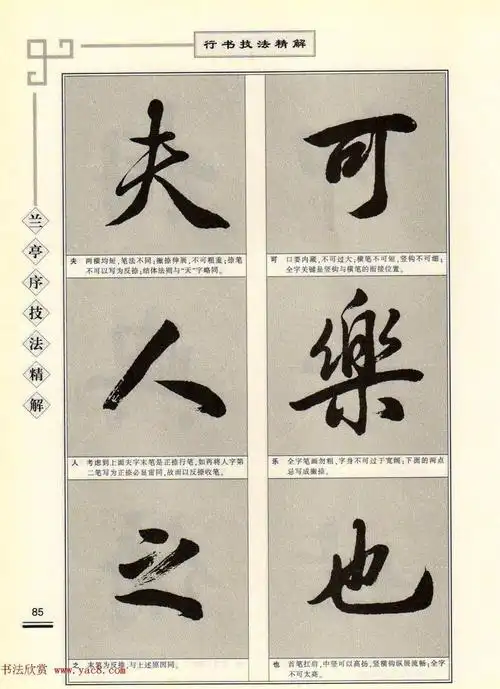 行书技法精解
兰亭序技法精解
可
可 口要内藏，不可过大；横笔不可短，竖钩不可细；
全字关键是竖钩与横笔的衔接位置。
樂
乐 全字笔画勿粗，字身不可过于宽阔；下面的两点
总写成撇捺。
也
也 首笔扛肩，中竖可以高扬，竖横钩纵展流畅；全字
不可太高。
夫
夫 两横均短，笔法不同；撇捺伸展，不可粗重；捺笔
不可以写为反捺；结体法则与“天”字略同。
人
人 考虑到上面夫字末笔是正捺行笔，如再将人字第
二笔写为正捺必显雷同，故而以反捺收笔。
之
之 末笔为反捺，与上述原因同。
85
书法欣赏 www.yac8.com